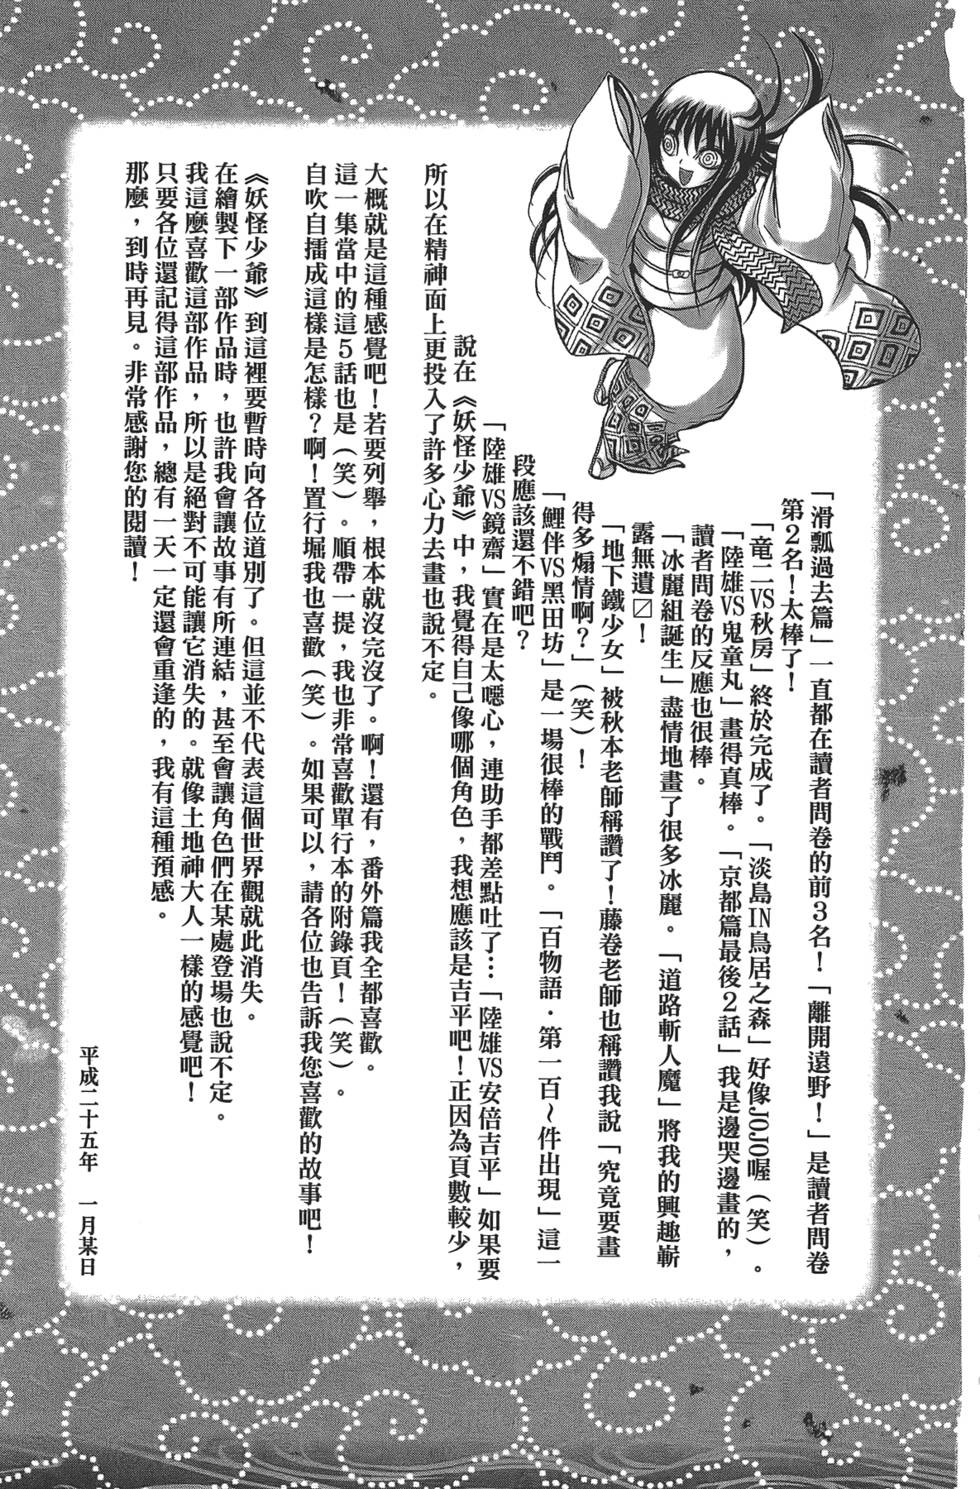 「滑瓢過去篇」一直都在讀者問卷的前3名！「離開遠野！」是讀者問卷
第2名！太棒了！
「竜二VS秋房」終於完成了。「淡島IN鳥居之森」好像JOJO喔（笑）。
「陸雄VS鬼童丸」畫得真棒。「京都篇最後2話」我是邊哭邊畫的，
讀者問卷的反應也很棒。
「冰麗組誕生」盡情地畫了很多冰麗。「道路斬人魔」將我的興趣嶄
露無遺〼！
「地下鐵少女」被秋本老師稱讚了！藤卷老師也稱讚我說「究竟要畫
得多煽情啊？」（笑）！
「鯉伴VS黑田坊」是一場很棒的戰鬥。「百物語．第一百～件出現」這一
段應該還不錯吧？
「陸雄VS鏡齋」實在是太噁心，連助手都差點吐了…「陸雄VS安倍吉平」如果要
說在《妖怪少爺》中，我覺得自己像哪個角色，我想應該是吉平吧！正因為頁數較少，
所以在精神面上更投入了許多心力去畫也說不定。
大概就是這種感覺吧！若要列舉，根本就沒完沒了。啊！還有，番外篇我全都喜歡。
這一集當中的這5話也是（笑）。順帶一提，我也非常喜歡單行本的附錄頁！（笑）。
自吹自擂成這樣是怎樣？啊！置行堀我也喜歡（笑）。如果可以，請各位也告訴我您喜歡的故事吧！
《妖怪少爺》到這裡要暫時向各位道別了。但這並不代表這個世界觀就此消失。
在繪製下一部作品時，也許我會讓故事有所連結，甚至會讓角色們在某處登場也說不定。
我這麼喜歡這部作品，所以是絕對不可能讓它消失的。就像土地神大人一樣的感覺吧！
只要各位還記得這部作品，總有一天一定還會重逢的，我有這種預感。
那麼，到時再見。非常感謝您的閱讀！
平成二十五年　一月某日